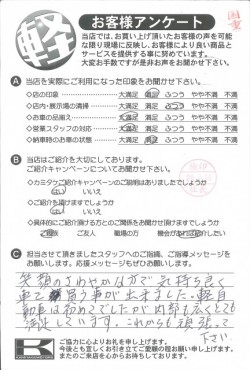 軽
お客様アンケート
当店では、お買い上げ頂いたお客様の声を可能
な限り現場に反映し、お客様により良い商品と
サービスを提供する事に努めています。
大変お手数ですが是非お声をお聞かせ下さい。
A 当店を実際にご利用になった印象をお聞かせ下さい。
◇店の印象 大満足 満足 ふつう やや不満 不満
◇店内・展示場の清掃 大満足 満足 ふつう やや不満 不満
◇お車の品揃え 大満足 満足 ふつう やや不満 不満
◇営業スタッフの対応 大満足 満足 ふつう やや不満 不満
◇納車時のお車の状態 大満足 満足 ふつう やや不満 不満
B 当店はご紹介を大切にしております。
ご紹介キャンペーンについてお聞かせ下さい
◇カミタケご紹介キャンペーンのご説明はありましたでしょうか
はい いいえ
◇ご紹介は頂けますでしょうか
はい いいえ
◇具体的にご紹介頂ける方との関係をお聞かせ頂けますでしょうか
ご親族 ご友人 職場の方 機会があればご紹介したい
C 担当させて頂きましたスタッフへのご指摘、ご指導メッセージを
お願いします。応援メッセージもぜひお願いします。
笑顔のさわやかな方で気持ち良く
車で買う事が出来ました。軽自
動車は初めてでしたが内部も広くとても
満足しています。これからも頑張って
下さい
K
ご協力に心よりお礼を申し上げます。
今後とも宜しくお引き立てご愛顧の程お願い申し上げます。
またのご来店を心からお待ちしております。